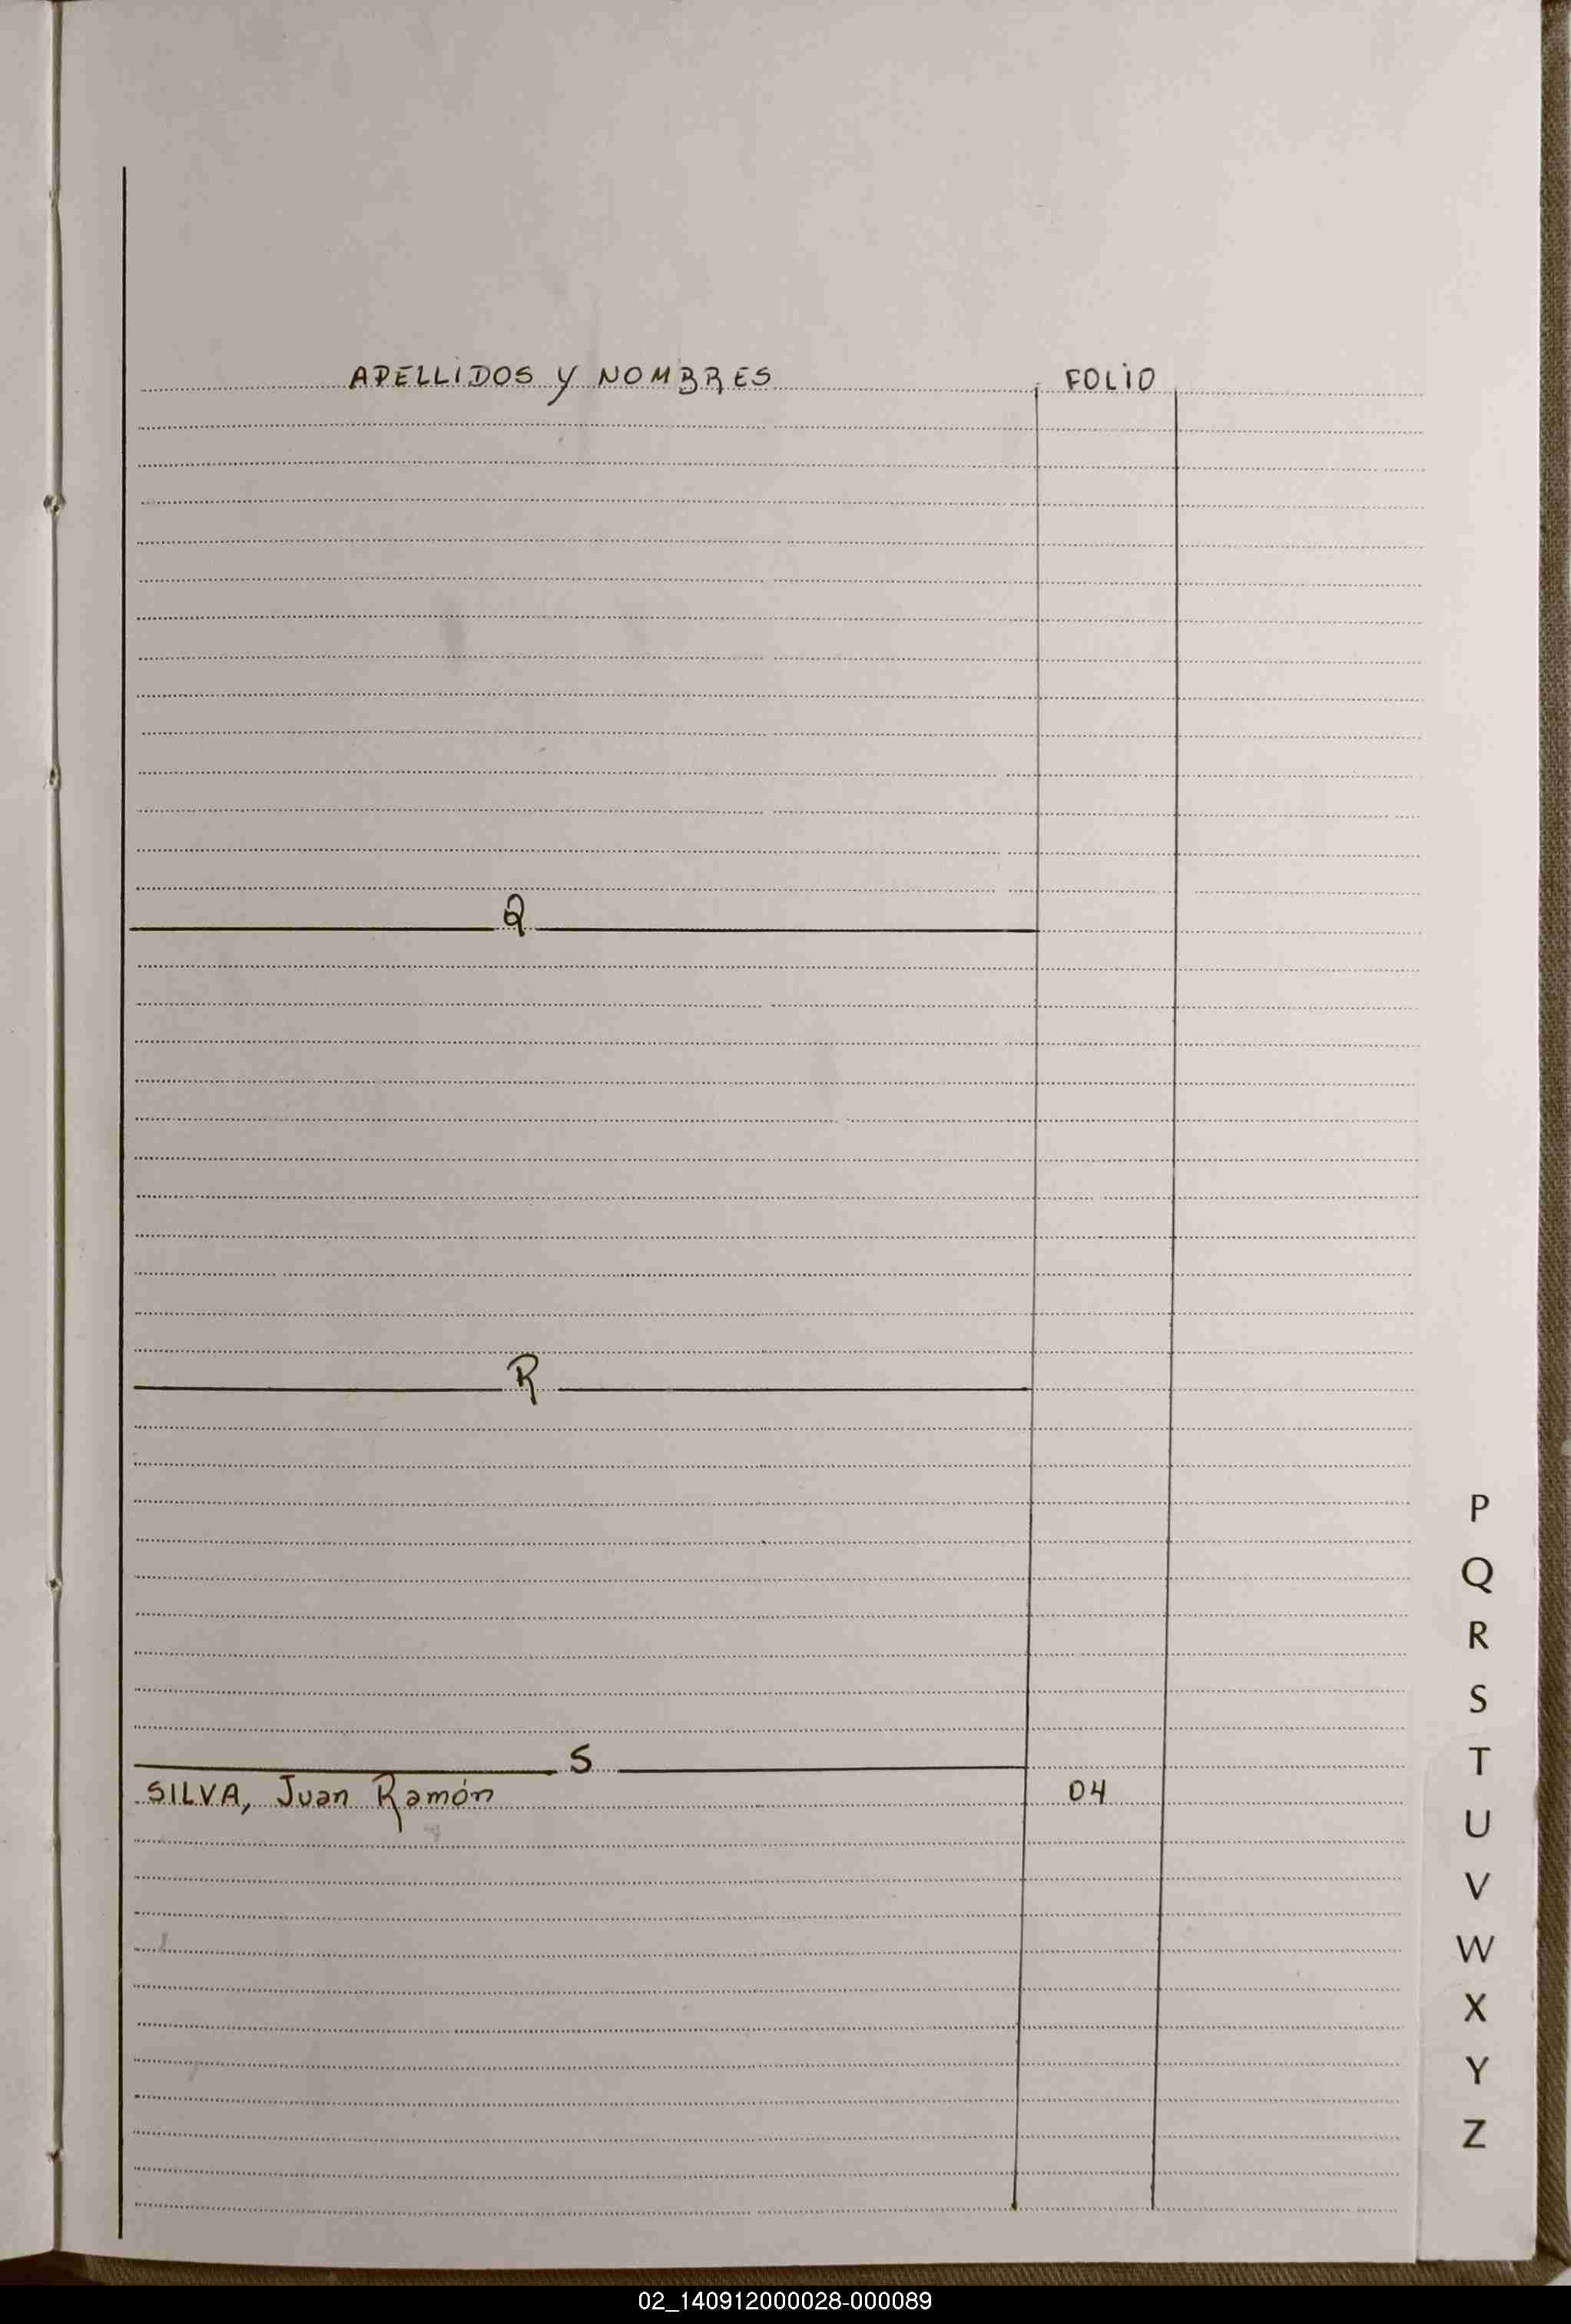 APELLIDOS Y NOMBRES FOLIO
Q
R
S
SILVA, Juan Ramón 04
P
Q
R
S
T
U
V
W
X
Y
Z
02_140912000028-000089